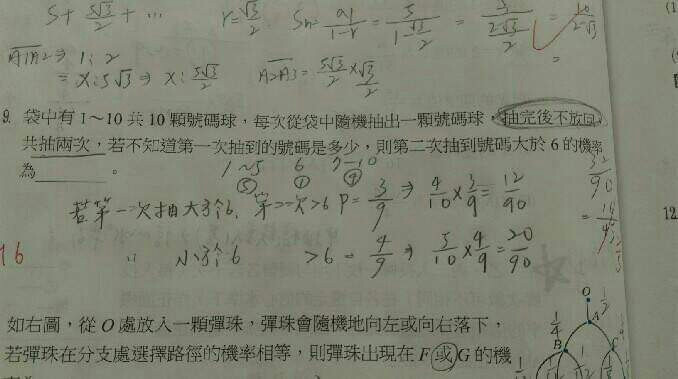 S + 5√3/2 + ... r = √3/2 Sn = a1/1-r = 5/1-√3/2 = 5/2-√3/2 = 10/2-√3
A1A2 ⇒ 1:2
= x:5√3 ⇒ x: 5√3/2 A2A3 = 5√3/2 × √3/2
9. 袋中有 1～10 共 10 顆號碼球，每次從袋中隨機抽出一顆號碼球，抽完後不放回
共抽兩次，若不知道第一次抽到的號碼是多少，則第二次抽到號碼大於 6 的機率
為______。 1～5 6 7～10 32/90
⑤ ① ④
若第一次抽大於6, 第二次>6 P = 3/9 ⇒ 4/10 × 3/9 = 12/90
16 〃 小於6 >6 = 4/9 ⇒ 5/10 × 4/9 = 20/90
如右圖，從 O 處放入一顆彈珠，彈珠會隨機地向左或向右落下，
若彈珠在分支處選擇路徑的機率相等，則彈珠出現在 F 或 G 的機
O
A
B
1/4
12